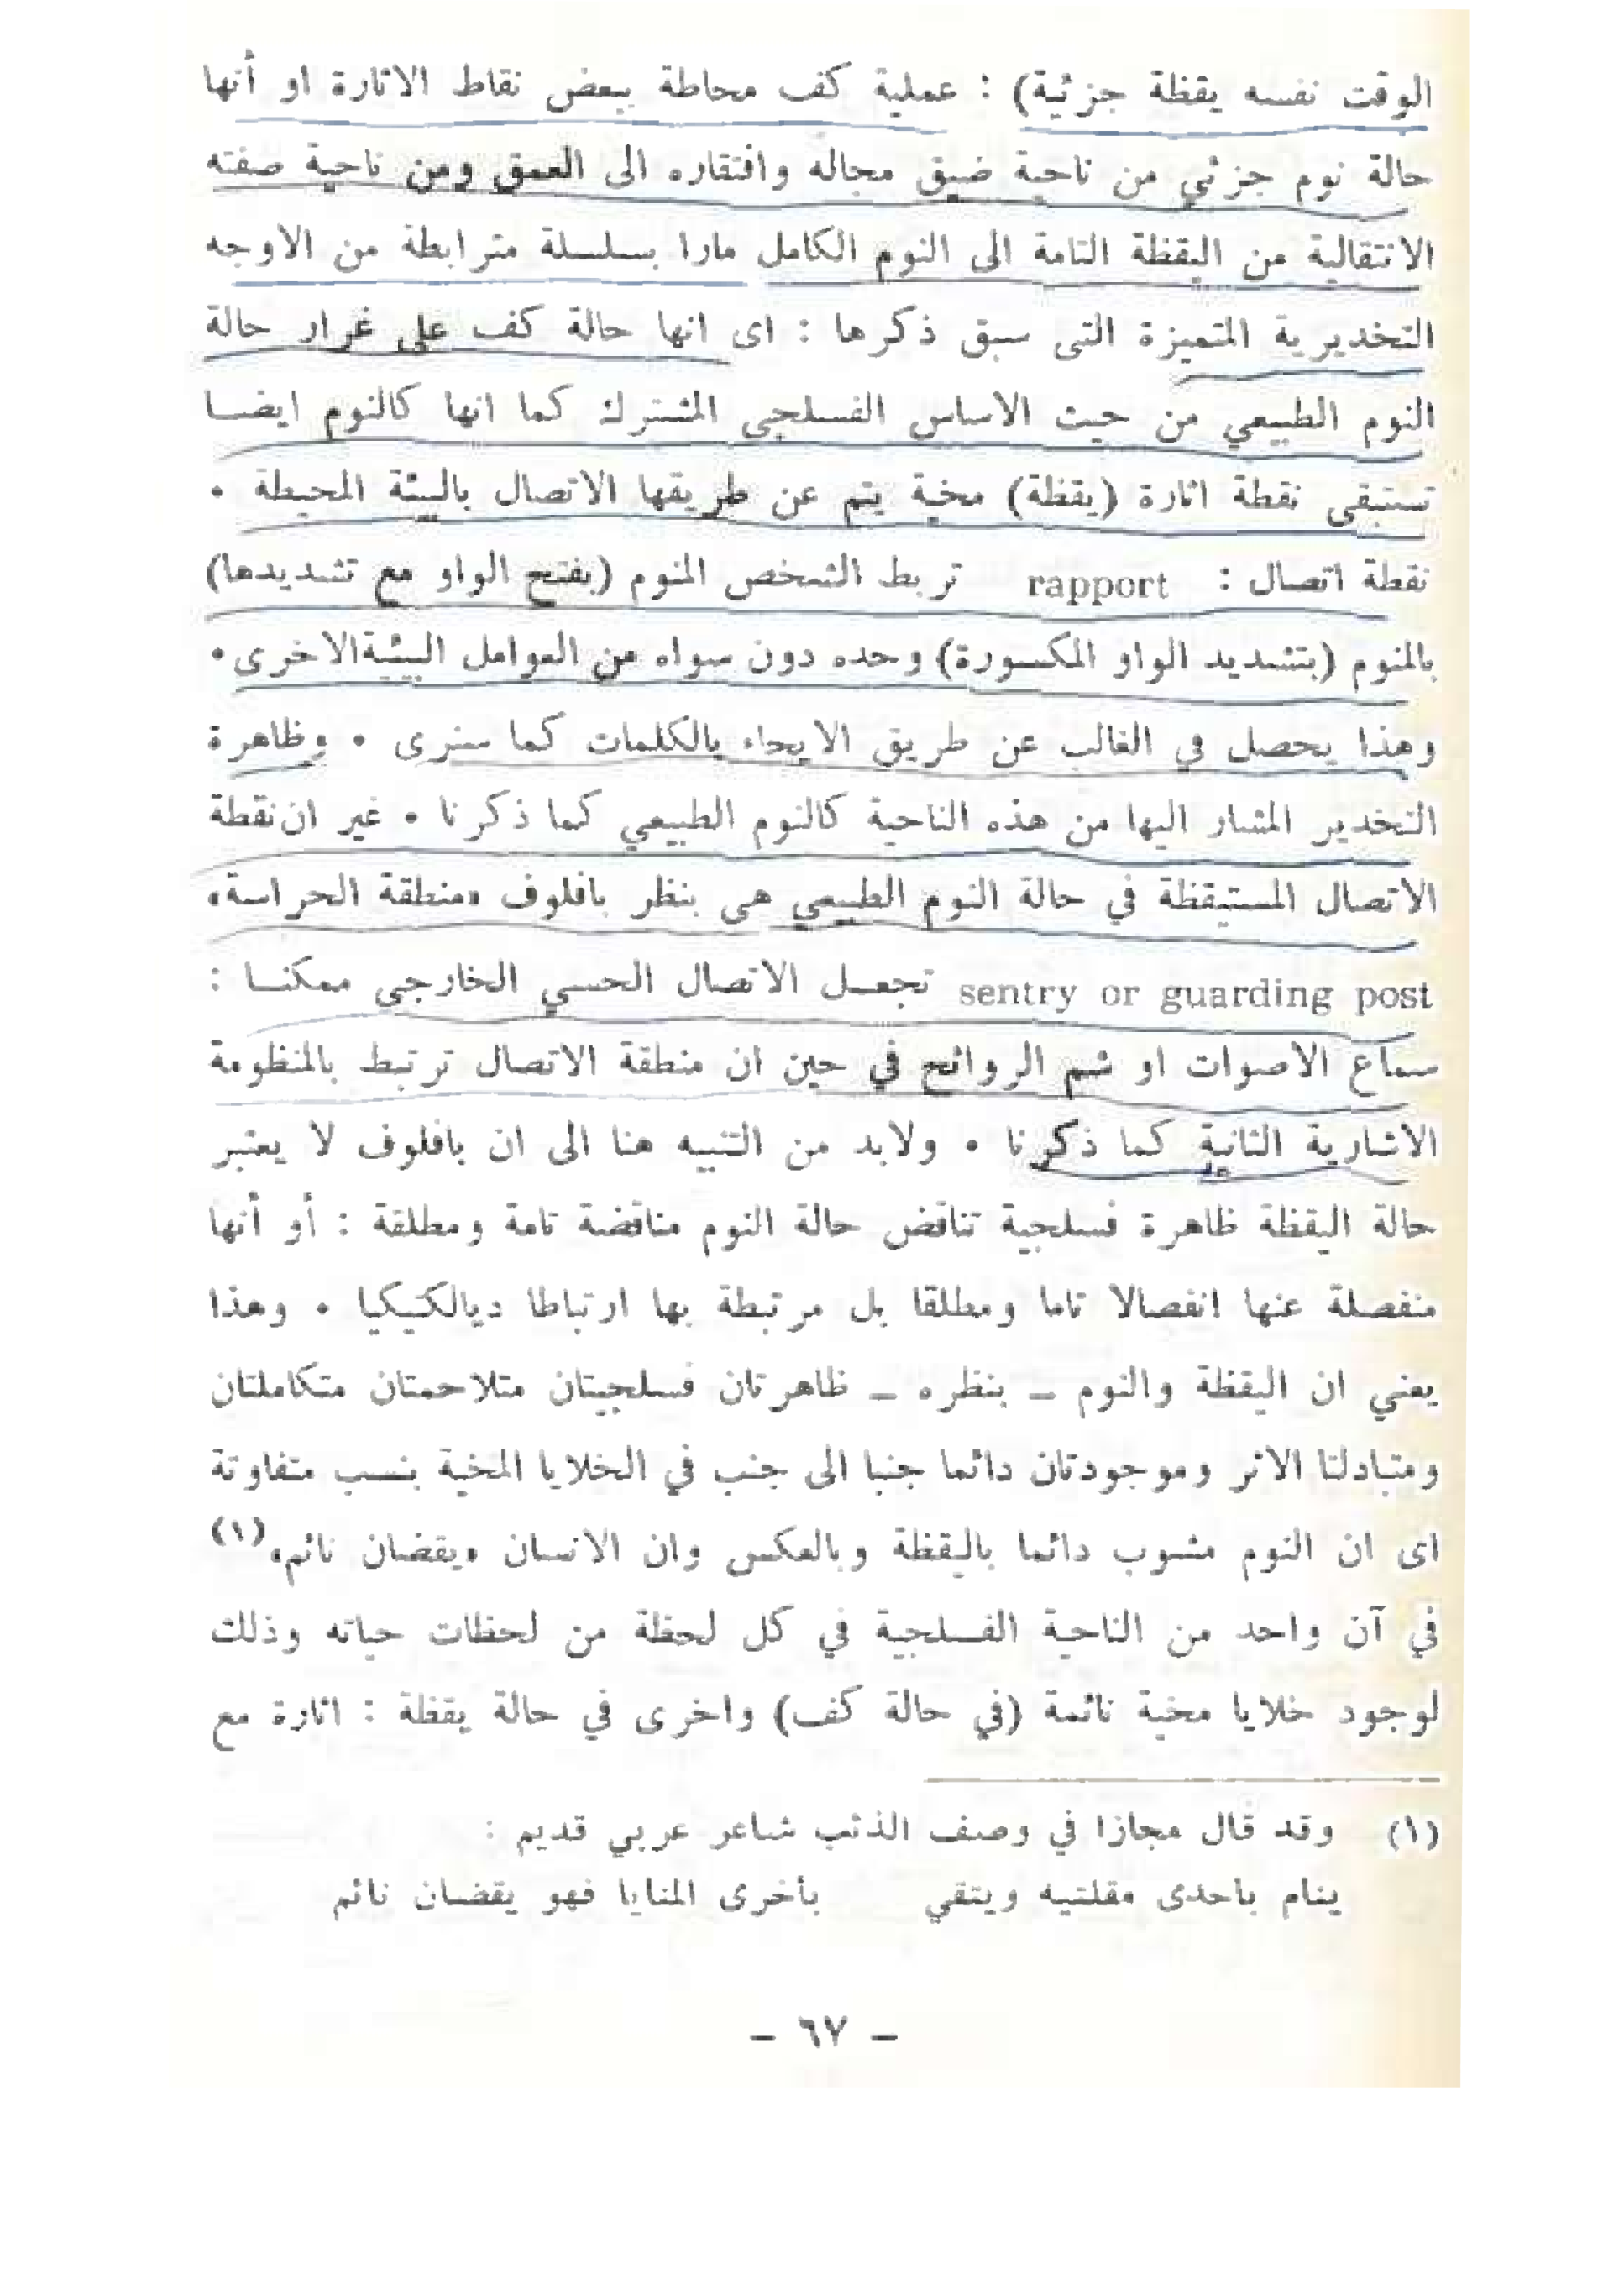 الوقت نفسه يقظة جزئية) : عملية كف محاطة ببعض نقاط الاثارة او أنها
حالة نوم جزئي من ناحية ضيق مجاله وافتقاره الى العمق ومن ناحية صفته
الانتقالية من اليقظة التامة الى النوم الكامل مارا بسلسلة مترابطة من الاوجه
التخديرية المتميزة التى سبق ذكرها : اى انها حالة كف على غرار حالة
النوم الطبيعي من حيث الاساس الفسلجى المشترك كما انها كالنوم ايضا
تستبقى نقطة اثارة (يقظة) مخية يتم عن طريقها الاتصال بالبيئة المحيطة ٠
نقطة اتصال : rapport تربط الشخص المنوم (بفتح الواو مع تشديدها)
بالمنوم (بتشديد الواو المكسورة) وحده دون سواه من العوامل البيئية الاخرى ٠
وهذا يحصل في الغالب عن طريق الايحاء بالكلمات كما سنرى ٠ وظاهرة
التخدير المشار اليها من هذه الناحية كالنوم الطبيعي كما ذكرنا ٠ غير ان نقطة
الاتصال المستيقظة في حالة النوم الطبيعي هى بنظر بافلوف «منطقة الحراسة»
sentry or guarding post تجعل الاتصال الحسي الخارجى ممكنا :
سماع الاصوات او شم الروائح في حين ان منطقة الاتصال ترتبط بالمنظومة
الاشارية الثانية كما ذكرنا ٠ ولابد من التنبيه هنا الى ان بافلوف لا يعتبر
حالة اليقظة ظاهرة فسلجية تناقض حالة النوم مناقضة تامة ومطلقة : أو أنها
منفصلة عنها انفصالا تاما ومطلقا بل مرتبطة بها ارتباطا ديالكتيكيا ٠ وهذا
يعني ان اليقظة والنوم – بنظره – ظاهرتان فسلجيتان متلاحمتان متكاملتان
ومتبادلتا الاثر وموجودتان دائما جنبا الى جنب في الخلايا المخية بنسب متفاوتة
اى ان النوم مشوب دائما باليقظة وبالعكس وان الانسان «يقضان نائم»(١)
في آن واحد من الناحية الفسلجية في كل لحظة من لحظات حياته وذلك
لوجود خلايا مخية نائمة (في حالة كف) واخرى في حالة يقظة : اثارة مع
(١) وقد قال مجازا في وصف الذئب شاعر عربي قديم :
ينام باحدى مقلتيه ويتقي بأخرى المنايا فهو يقضان نائم
– ٦٧ –